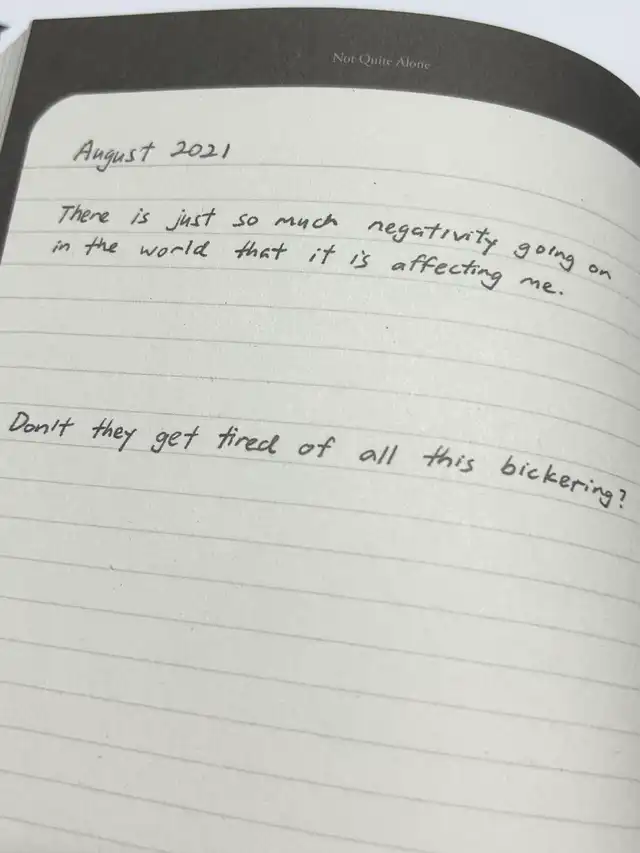 Not Quite Alone
August 2021
There is just so much negativity going on
in the world that it is affecting me.
Don't they get tired of all this bickering?